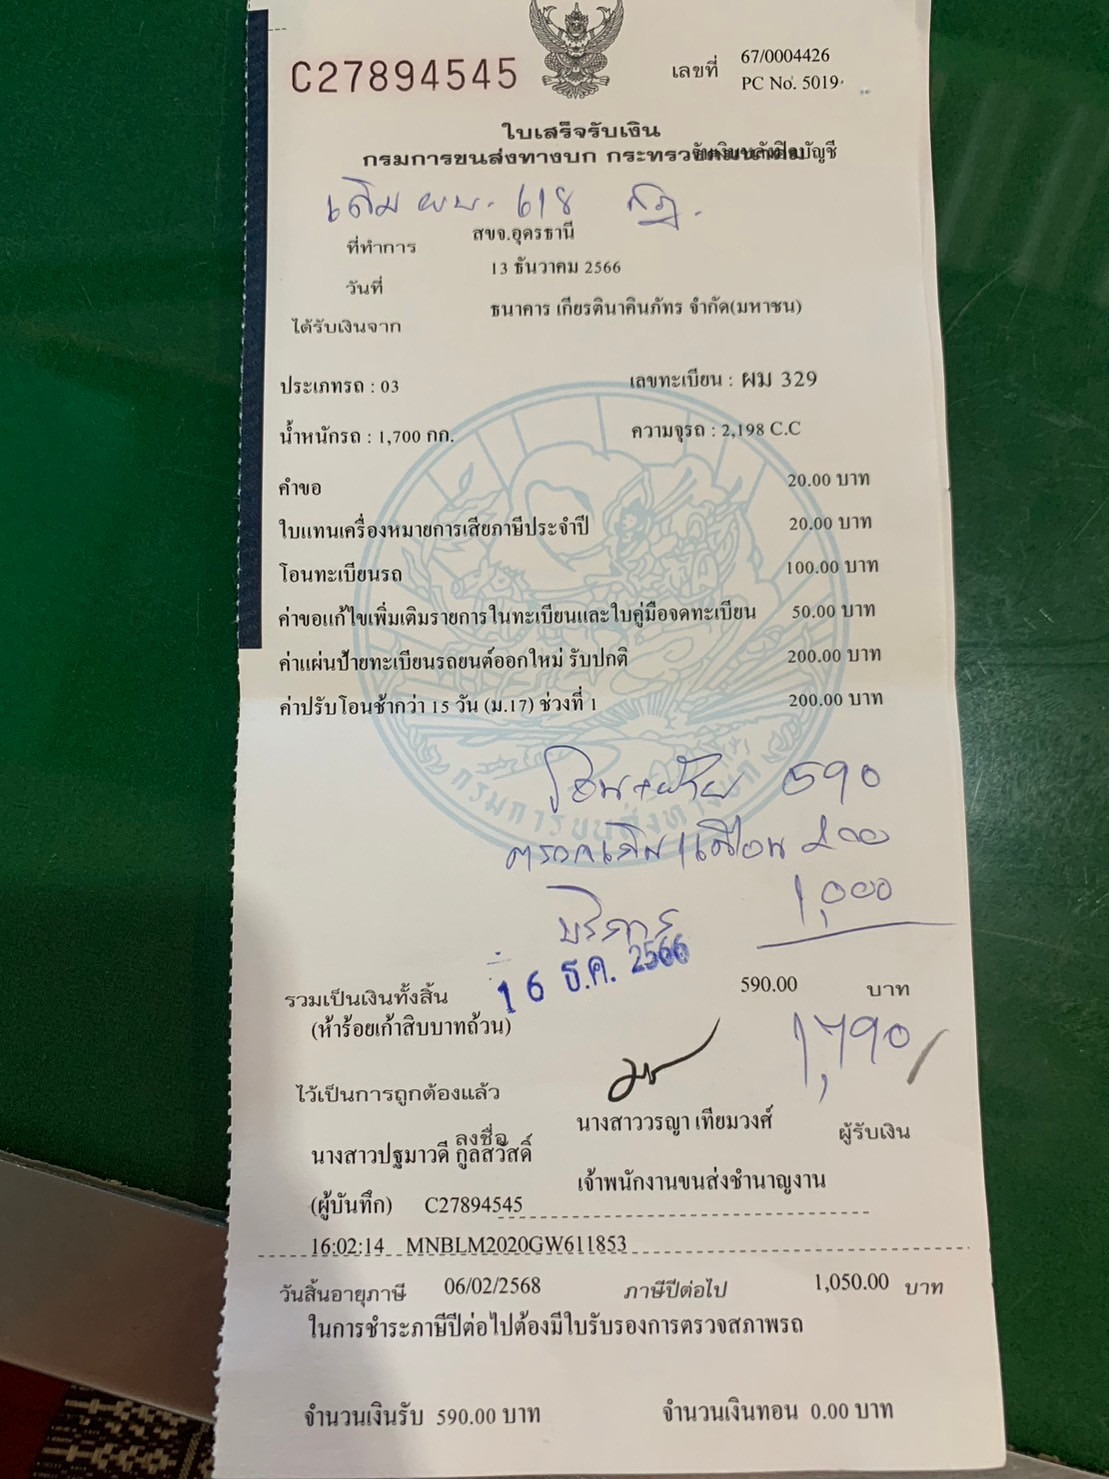 C27894545
เลขที่ 67/0004426
PC No. 5019
ใบเสร็จรับเงิน
กรมการขนส่งทางบก กระทรวงคมนาคม
รับเงินหลังปิดบัญชี
เดิม ผบ. 618
ที่ทำการ สขจ.อุดรธานี
วันที่ 13 ธันวาคม 2566
ได้รับเงินจาก ธนาคาร เกียรตินาคินภัทร จำกัด(มหาชน)
ประเภทรถ : 03 เลขทะเบียน : ผม 329
น้ำหนักรถ : 1,700 กก. ความจุรถ : 2,198 C.C
คำขอ 20.00 บาท
ใบแทนเครื่องหมายการเสียภาษีประจำปี 20.00 บาท
โอนทะเบียนรถ 100.00 บาท
ค่าขอแก้ไขเพิ่มเติมรายการในทะเบียนและใบคู่มือจดทะเบียน 50.00 บาท
ค่าแผ่นป้ายทะเบียนรถยนต์ออกใหม่ รับปกติ 200.00 บาท
ค่าปรับโอนช้ากว่า 15 วัน (ม.17) ช่วงที่ 1 200.00 บาท
กรมการขนส่งทางบก
โอน+ป้าย 590
200
บริการ 1,000
16 ธ.ค. 2566
รวมเป็นเงินทั้งสิ้น 590.00 บาท
(ห้าร้อยเก้าสิบบาทถ้วน)
1,790
ไว้เป็นการถูกต้องแล้ว
ลงชื่อ นางสาววรญา เทียมวงศ์ ผู้รับเงิน
นางสาวปฐมาวดี กูลสวัสดิ์
เจ้าพนักงานขนส่งชำนาญงาน
(ผู้บันทึก) C27894545
16:02:14 MNBLM2020GW611853
วันสิ้นอายุภาษี 06/02/2568 ภาษีปีต่อไป 1,050.00 บาท
ในการชำระภาษีปีต่อไปต้องมีใบรับรองการตรวจสภาพรถ
จำนวนเงินรับ 590.00 บาท จำนวนเงินทอน 0.00 บาท